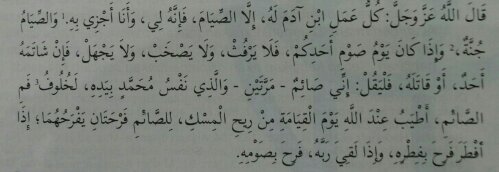 قَالَ اللَّهُ عَزَّ وَجَلَّ: كُلُّ عَمَلِ ابْنِ آدَمَ لَهُ، إِلَّا الصِّيَامَ، فَإِنَّهُ لِي، وَأَنَا أَجْزِي بِهِ.¹ وَالصِّيَامُ
جُنَّةٌ،² وَإِذَا كَانَ يَوْمُ صَوْمِ أَحَدِكُمْ، فَلَا يَرْفُثْ، وَلَا يَصْخَبْ، وَلَا يَجْهَلْ، فَإِنْ شَاتَمَهُ
أَحَدٌ، أَوْ قَاتَلَهُ، فَلْيَقُلْ: إِنِّي صَائِمٌ - مَرَّتَيْنِ - وَالَّذِي نَفْسُ مُحَمَّدٍ بِيَدِهِ، لَخُلُوفُ³ فَمِ
الصَّائِمِ، أَطْيَبُ عِنْدَ اللَّهِ يَوْمَ الْقِيَامَةِ مِنْ رِيحِ الْمِسْكِ، لِلصَّائِمِ فَرْحَتَانِ يَفْرَحُهُمَا؛ إِذَا
أَفْطَرَ فَرِحَ بِفِطْرِهِ، وَإِذَا لَقِيَ رَبَّهُ، فَرِحَ بِصَوْمِهِ.